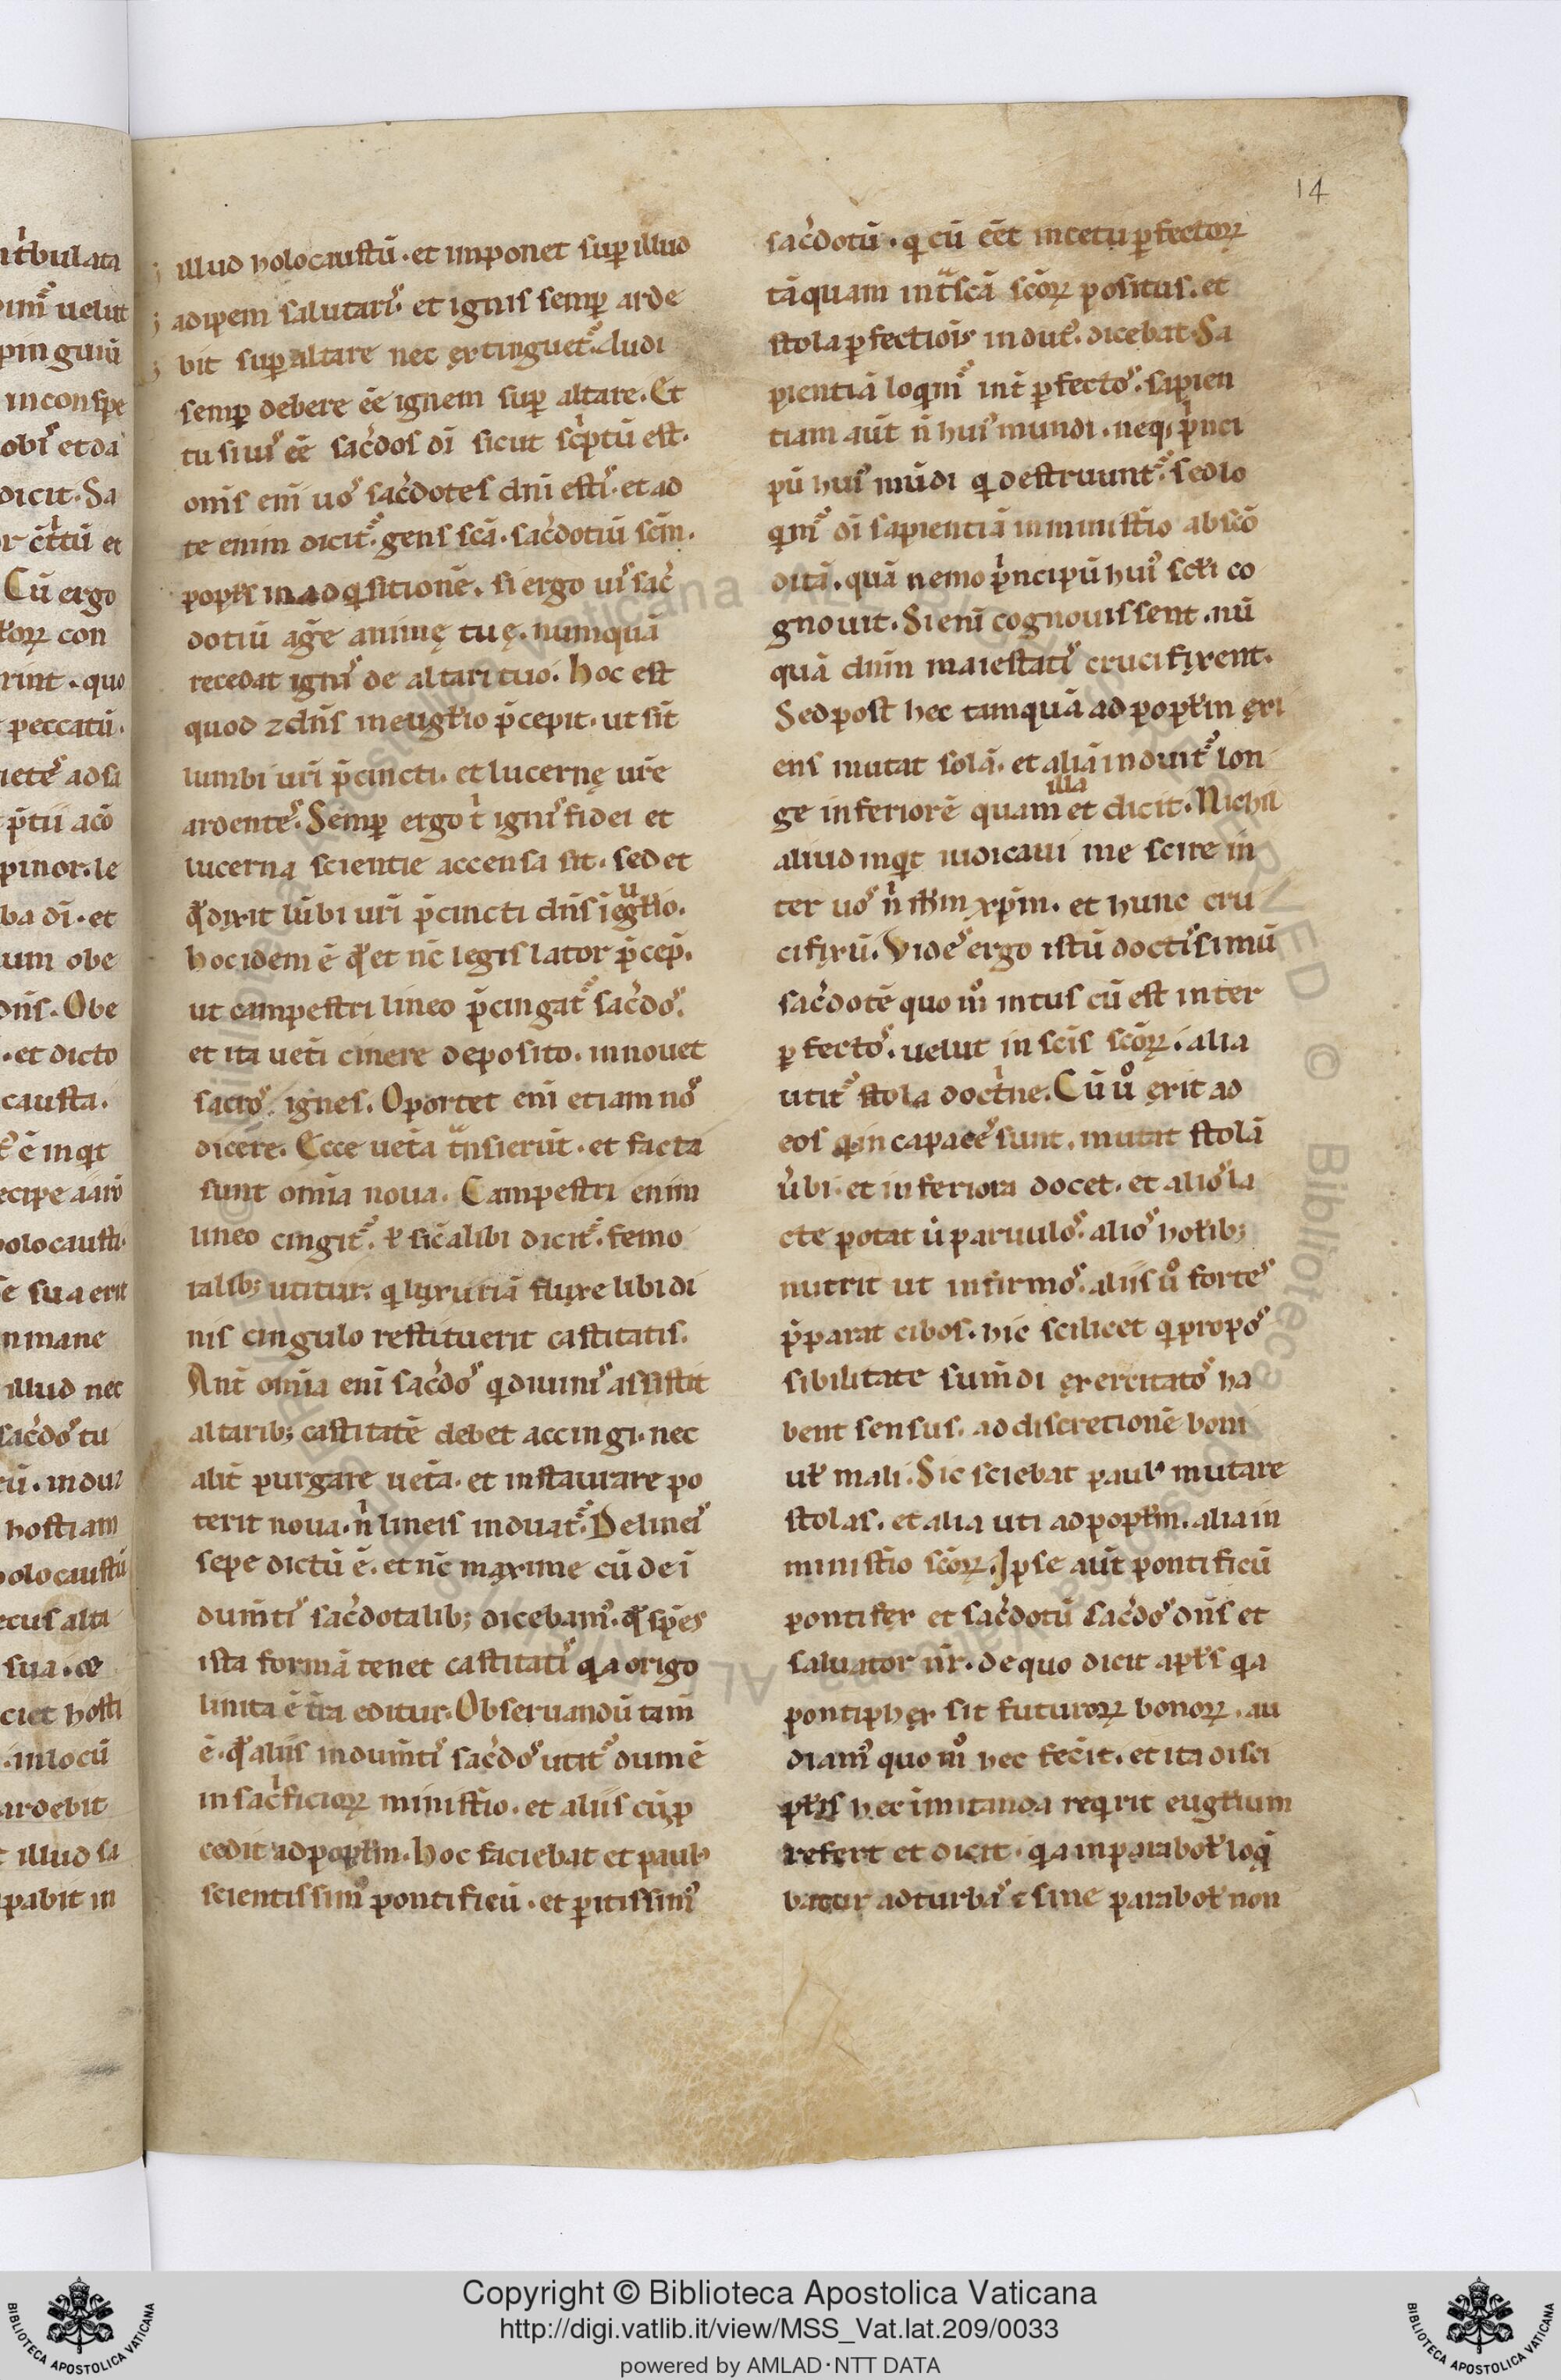 14
illud holocaustū · et imponet suꝑ illud
adipem salutaris · et ignis semꝑ arde
bit suꝑ altare nec extinguet᷒ · Audi
semꝑ debere eē ignem suꝑ altare. Et
tu si uis eē sac̄dos dī sicut scͥptū est.
om̄s enī uos sac̄dotes dn̄i estis · et ad
te enim dicit᷒ gens scā · sac̄dotiū scm̄.
popłs in adqͥsitionē. si ergo uis sac̄
dotiū aḡe animę tuę. numquā
recedat ignis de altari tuo. Hoc est
quod ⁊ dn̄s in eugłio p̄cepit. ut sīt
lumbi urī p̄cincti. et lucernę ur̄e
ardentes. Semꝑ ergo tͥ ignis fidei et
lucerna scientie accensa sit. sed et
qd̄ dixit lūbi urī p̄cincti dn̄s ī eugłio.
hoc idem ē qd̄ et nc̄ legislator p̄cep̄.
ut campestri lineo p̄cingat᷒ sac̄dos.
et ita uetī cinere deposito. innouet
sacros ignes. Oportet enī etiam nos
dicere. Ecce uetā tͣnsierūt. et facta
sunt om̄ia noua. Campestri enim
lineo cingit᷒. ł sic̄ alibi dicit᷒. femo
ralib; utitur. qͥ luxuriā fluxe libidi
nis cingulo restituerit castitatis.
Ant̄ om̄ia enī sac̄dos qͥ diuinis assistit
altarib; castitatē debet accingi. nec
alit̄ purgare uetā. et instaurare po
terit noua. nͥ lineis induat᷒. De lineis
sepe dictū ē. et nc̄ maxime cū de ī
dum̄tis sac̄dotalib; dicebam᷒. qd̄ spēs
ista formā tenet castitatis qͥa origo
lini ita ē tr̄a editur. Obseruandū tam̄
ē. qd̄ aliis indum̄tis sac̄dos utit᷒ dum ē
in sac̄ficioꝝ ministīo. et aliis cū ꝓ
cedit ad popłm. Hoc faciebat et paul᷒
scientissim᷒ pontificū. et ꝑitissim᷒
sac̄dotū. qͥ cū eēt in cetu ꝑfectoꝝ
tāquam int̄ scā scōꝝ positus. et
stola ꝑfectiōis indut᷒. dicebat. Sa
pientiā loqͥm᷒ int̄ ꝑfectos. sapien
tiam aūt n̄ hui᷒ mundi. neqͥ pͥnci
pū hui᷒ mūdi qͥ destruunt᷒. sed lo
qͥm᷒ dī sapientiā in ministīo abscō
ditā. quā nemo pͥncipū hui᷒ scłi co
gnouit. Si enī cognouissent. nū
quā dn̄m maiestatis crucifixent.
Sed post hec tamquā ad popłm exi
ens mutat solā. et aliā induit᷒ lon
ge inferiorē quam illa et dicit. Nichil
aliud inqͥt iudicaui me scire in
ter uos nͥ ihm̄ xp̄m. et hunc cru
cifixū. Vides ergo istū doctissimū
sac̄dotē quo mͦ intus cū est inter
ꝑfectos. uelut in scīs scōꝝ. alia
utit᷒ stola doctͥne. Cū uͦ exit ad
eos qͥ incapaces sunt. mutat stolā
ūbi. et inferiora docet. et alios la
cte potat ū paruulos. alios holīb;
nutrit ut infirmos. aliis uͦ fortes
p̄parat cibos. hic scilicet qͥ pro pos
sibilitate sum̄di exercitatos ha
bent sensus. ad discretionē boni
uł mali. Sic sciebat paul᷒ mutare
stolas. et alia uti ad popłm. alia in
ministīo scōꝝ. Ipse aūt pontificū
pontifex et sac̄dotū sac̄dos dn̄s et
saluator nr̄. de quo dicit apłs qͥa
pontiphex sit futuroꝝ bonoꝝ. au
diam᷒ quo mͦ hec fec̄it. et ita disci
płis hec imitanda reqͥrit eugłium
refert et dicit. qͥa in parabolł loqͥ
batur ad turbas ⁊ sine parabolł non
Copyright © Biblioteca Apostolica Vaticana
http://digi.vatlib.it/view/MSS_Vat.lat.209/0033
powered by AMLAD · NTT DATA
BIBLIOTECA APOSTOLICA VATICANA
BIBLIOTECA APOSTOLICA VATICANA